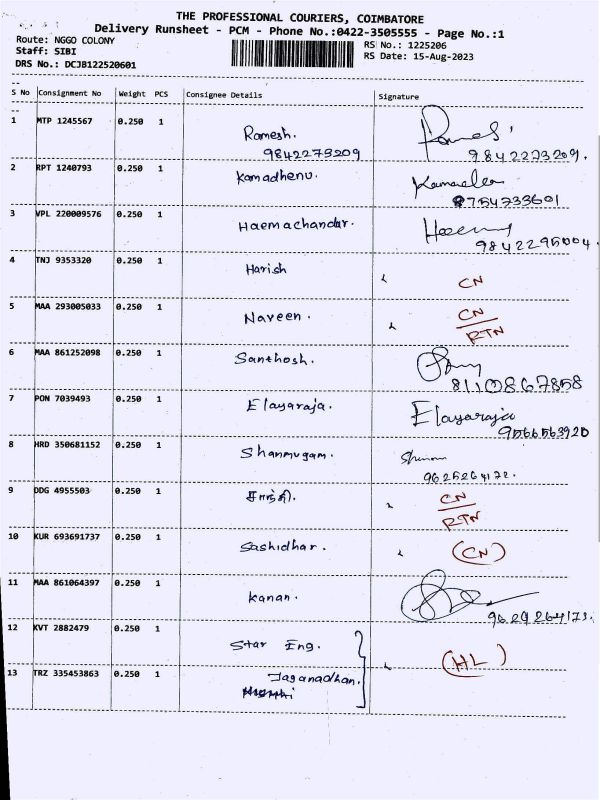 THE PROFESSIONAL COURIERS, COIMBATORE
Delivery Runsheet - PCM - Phone No.:0422-3505555 - Page No.:1
Route: NGGO COLONY
Staff: SIBI
DRS No.: DCJB122520601
RS No.: 1225206
RS Date: 15-Aug-2023
S No Consignment No Weight PCS Consignee Details Signature
1 MTP 1245567 0.250 1 Ramesh. 9842273209 9842273209.
2 RPT 1240793 0.250 1 Kamadhenu. 9754733601
3 VPL 220009576 0.250 1 Haemachandar. 9842295004
4 TNJ 9353320 0.250 1 Harish CN
5 MAA 293005033 0.250 1 Naveen. CN
RTN
6 MAA 861252098 0.250 1 Santhosh. 8110867858
7 PON 7039493 0.250 1 Elayaraja. Elayaraja
9566563920
8 HRD 350681152 0.250 1 Shanmugam. 9625264172.
9 DDG 4955503 0.250 1 சாந்தி. CN
RTN
10 KUR 693691737 0.250 1 Sashidhar. (CN)
11 MAA 861064397 0.250 1 Kanan. 9629264173.
12 KVT 2882479 0.250 1 Star Eng. (HL)
13 TRZ 335453863 0.250 1 Jaganadhan.